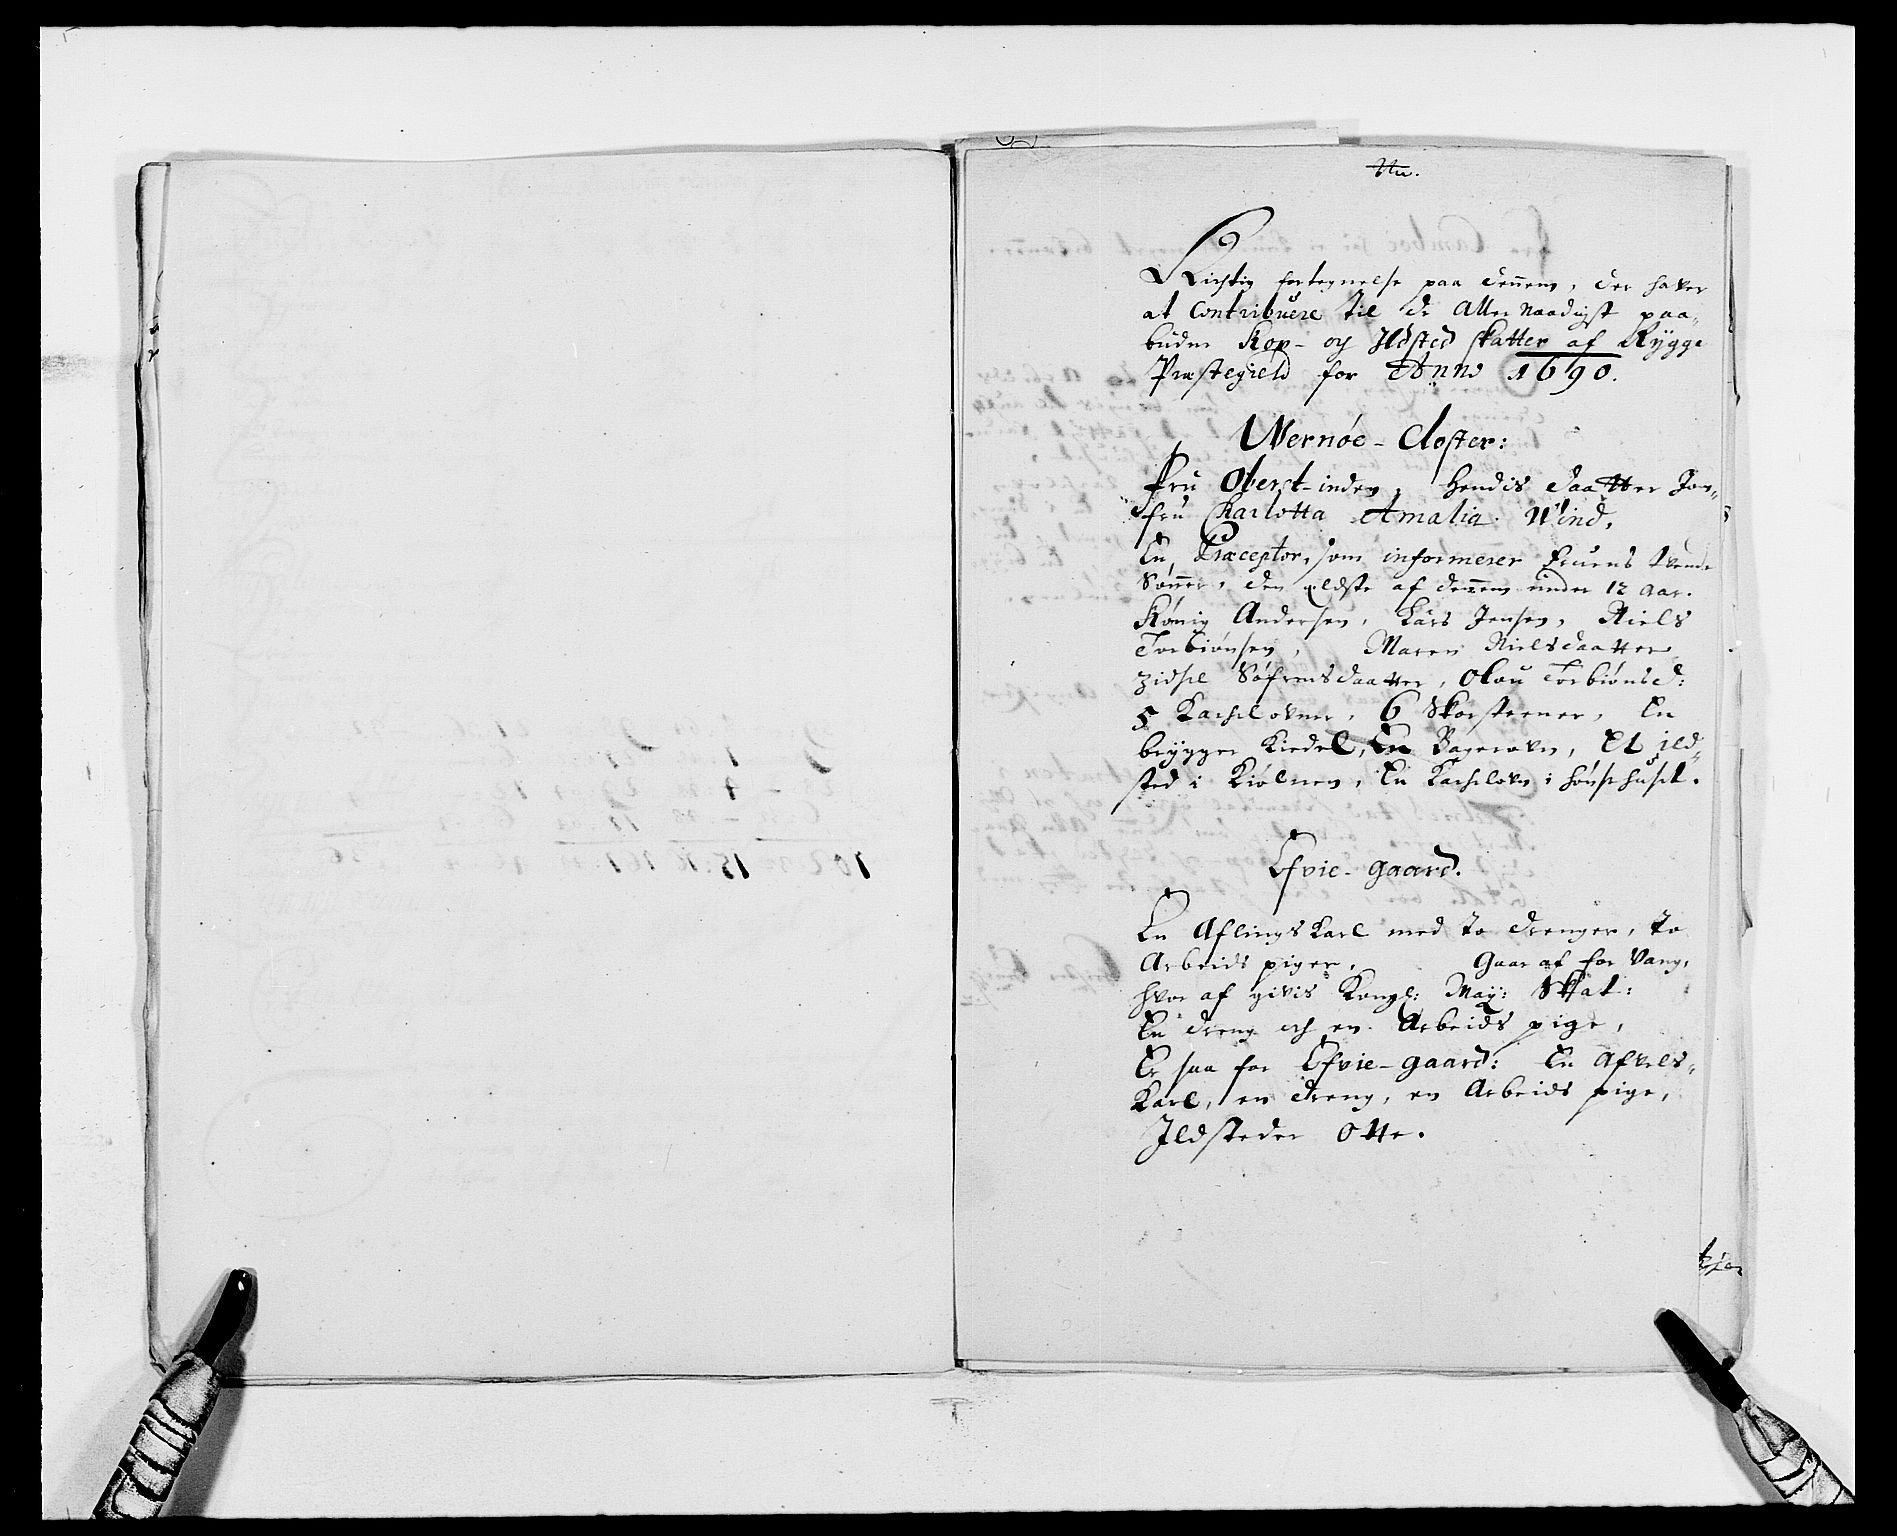 Richtig fortegnelse paa dennem, der haver
at Contribuere til de Aller Naadigst paa-
budne Kop- og Ildsted skatter af Rygge
Præstegield for Anno 1690.
Wernøe-Closter:
Fru Oberst-inden, Hendis daatter Jom-
fru Charlotta Amalia Wind,
En Præceptor, som informerer Fruens tvende
Sønner, den eldste af dennem under 12 aar.
König Andersen, Lars Jensen, Niels
Torbiønsen, Maren Nielsdaatter
Zidsel Søfrensdaatter, Olou Torbiønsd:
5 Kachelovner, 6 Skorsteener, En
brygger Kiedel, En Bagerovn, Et ild-
sted i Kiølnen, En Kachelovn i hønsehuset.
Efvie-gaard.
En Aflings Karl med to drenger, to
Arbeids piger, Gaar af for Vang,
hvor af givis Kongl: May: Skat:
En dreng och en Arbeids pige,
Er saa for Efvie-gaard: En Afvels-
Karl, en dreng, en Arbeids pige,
Ildsteder Otte.